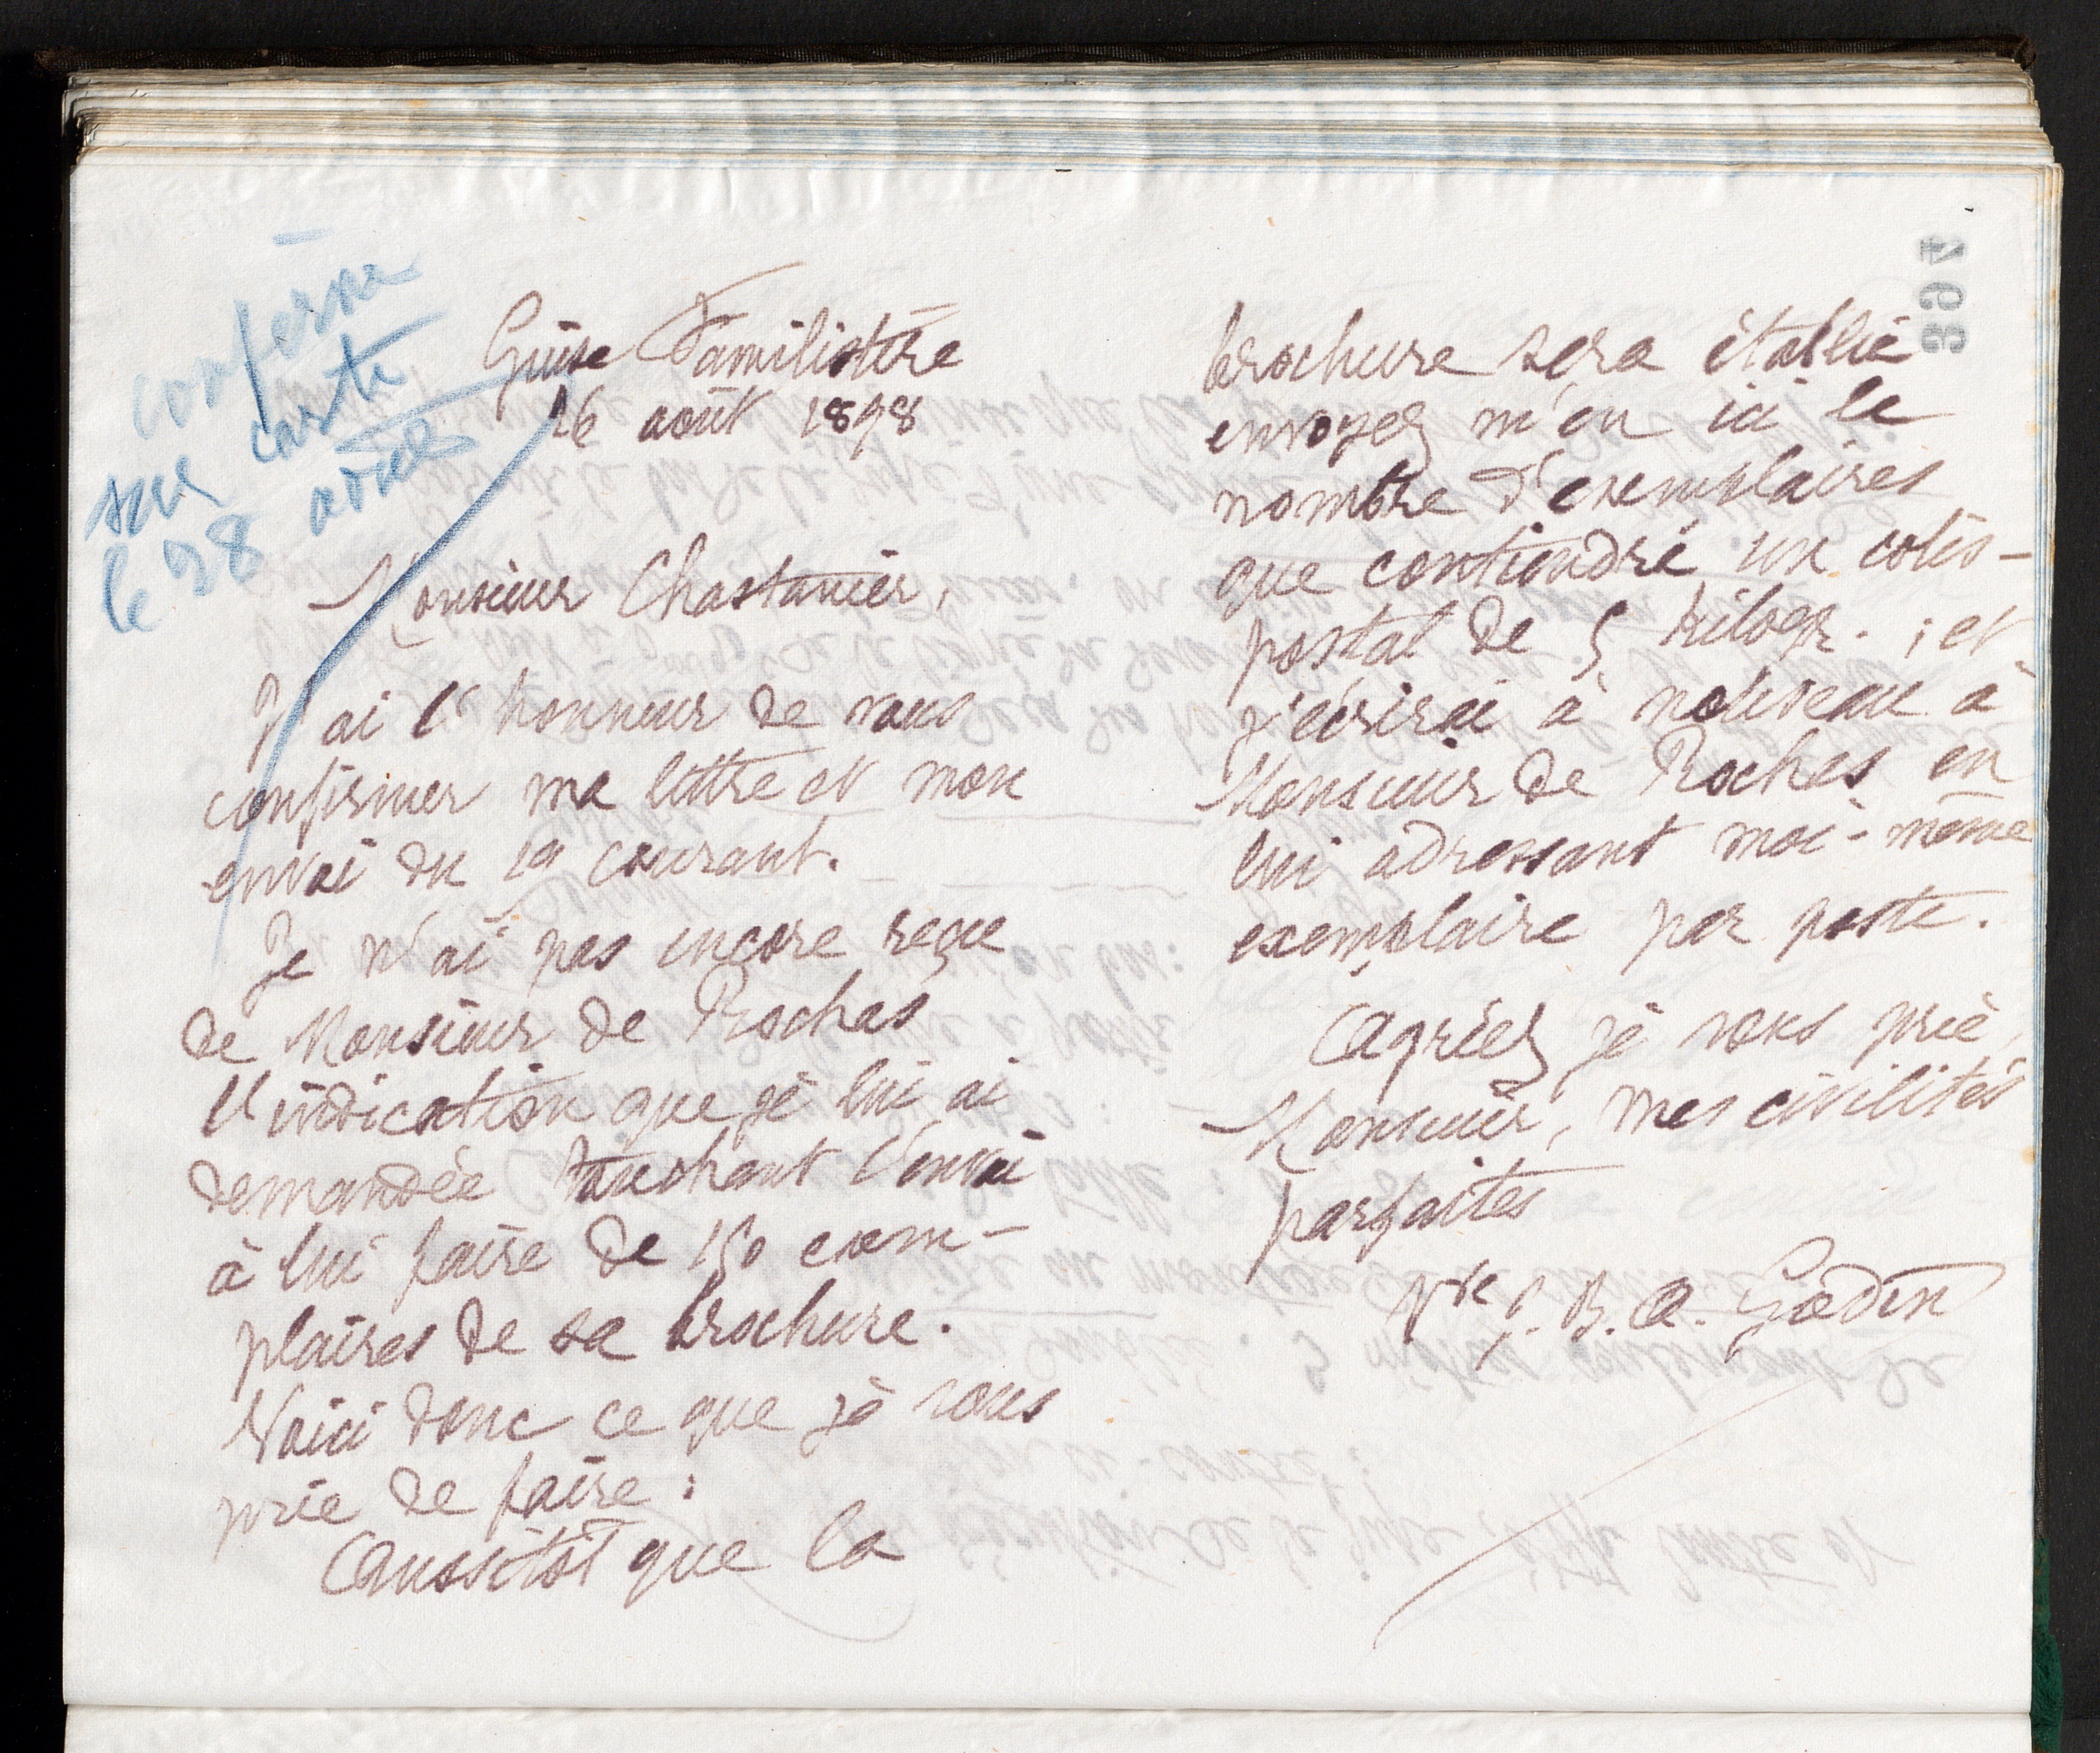 conférer
sur carte
le 28 août
Guise Familistère
26 août 1898
Monsieur Chastanier,
J'ai l'honneur de vous
confirmer ma lettre et mon
envoi du 19 courant.
Je n'ai pas encore reçu
de Monsieur de Rochas
l'indication que je lui ai
demandée touchant l'envoi
à lui faire de 150 exem-
plaires de sa brochure.
Voici donc ce que je vous
prie de faire :
Aussitôt que la
brochure sera établie
envoyez m'en ici le
nombre d'exemplaires
que contiendra un colis-
postal de 5 kilogr. ; et
j'écrirai à nouveau à
Monsieur de Rochas en
lui adressant moi-même
exemplaire par poste.
Agréez je vous prie,
Monsieur, mes civilités
parfaites
Vve J. B. A. Godin
397